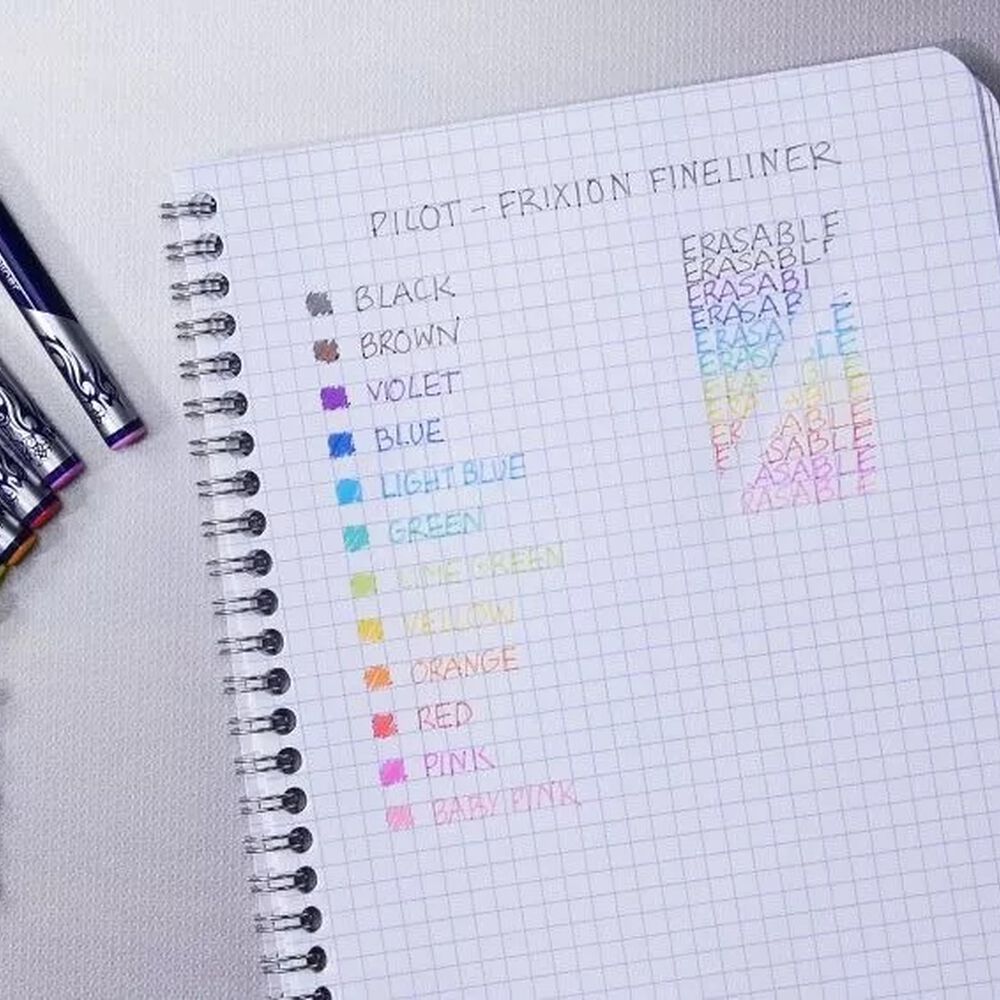 PILOT - FRIXION FINELINER
BLACK
BROWN
VIOLET
BLUE
LIGHT BLUE
GREEN
LIME GREEN
YELLOW
ORANGE
RED
PINK
BABY PINK
ERASABLE
ERASABLE
ERASABL
ERASAB E
ERASA LE
ERAS LE
ERA BLE
ERA ABLE
ER SABLE
E ASABLE
ASABLE
RASABLE